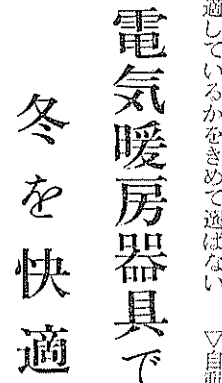 適しているかをきめて選ばない
▽自動
電気暖房器具で
冬を快適